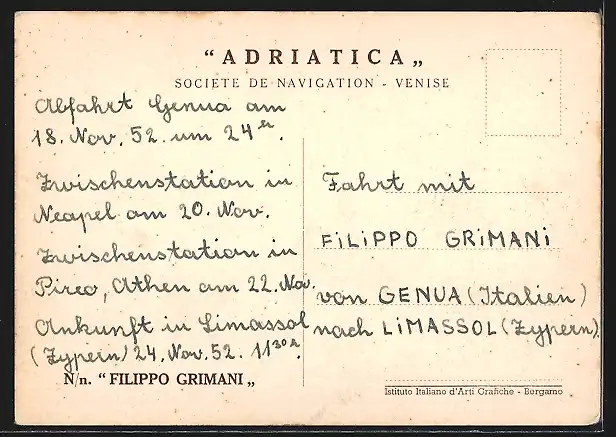 “ ADRIATICA „
SOCIETE DE NAVIGATION - VENISE
Abfahrt Genua am
18. Nov. 52. um 24 h.
Zwischenstation in
Neapel am 20. Nov.
Zwischenstation in
Pireo, Athen am 22. Nov.
Ankunft in Limassol
(Zypern) 24. Nov. 52. 11 30 h.
N/n. “ FILIPPO GRIMANI „
Fahrt mit
FiLiPPO GRiMANi
von GENUA (Italien)
nach LiMASSOL (Zypern).
Istituto Italiano d'Arti Grafiche - Bergamo